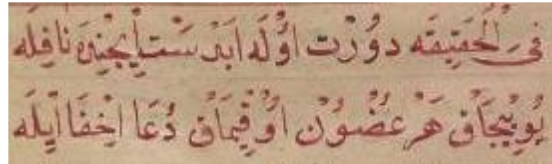 فِى الْحَقِيقَه دوُرْت اوُلَه اَبْدَسْت اِيچِنْدَه نَافِلَه
يُويِيجَاقْ هَرْ عُضْوُنْ اوُقِيمَاقْ دُعَا اِخْفَا اَيلَه